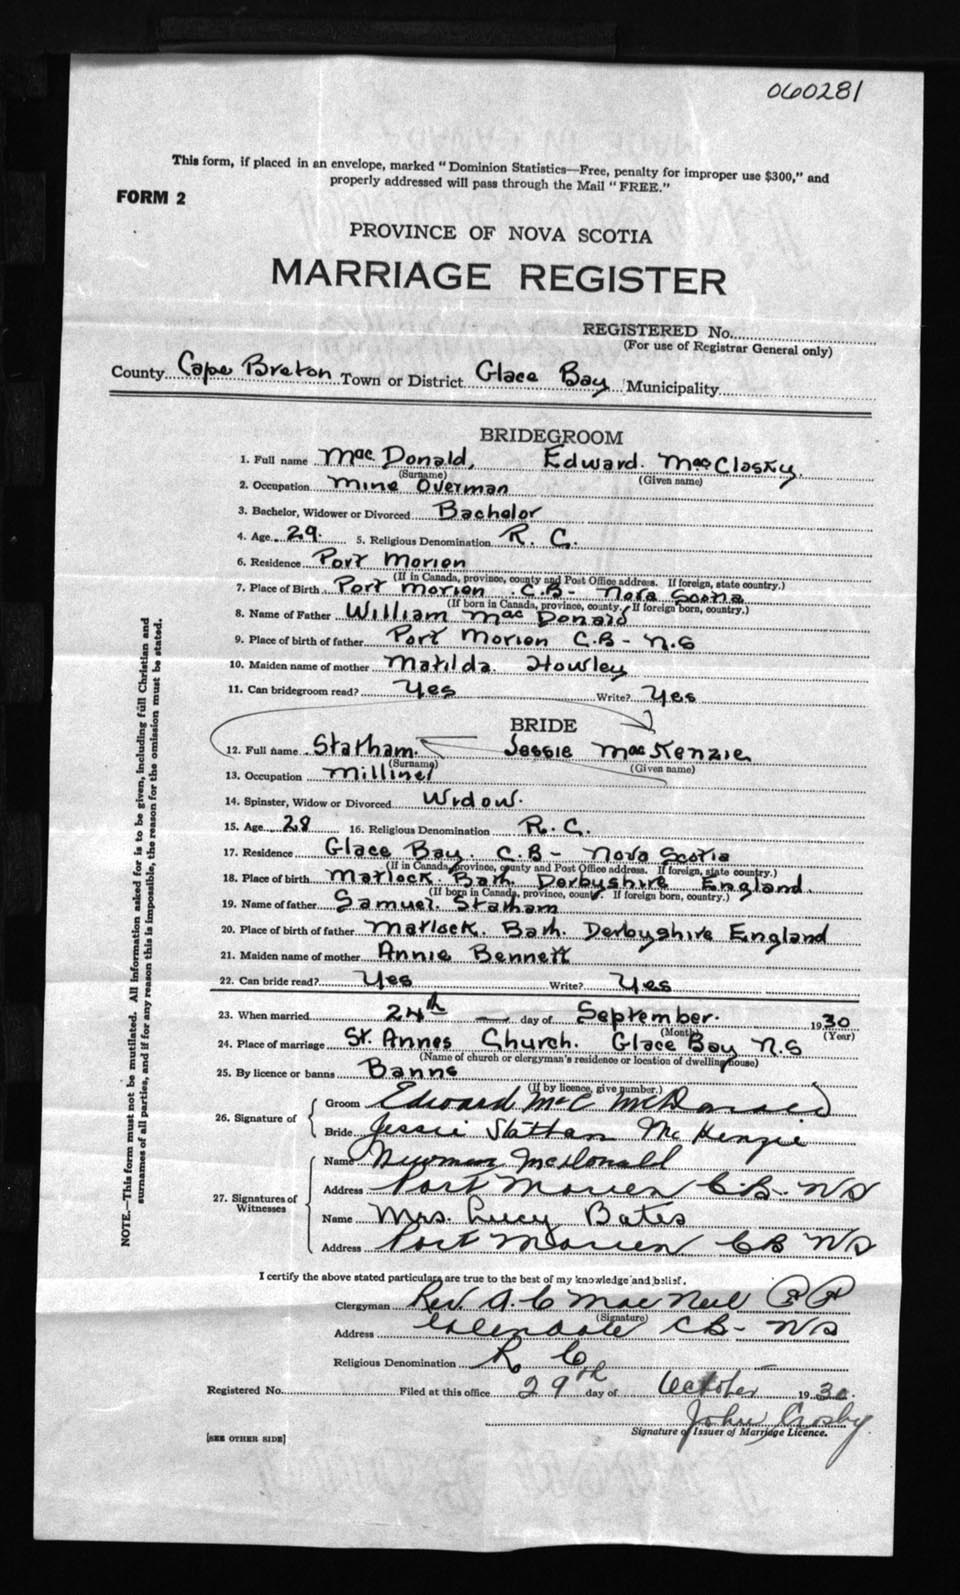 060281
This form, if placed in an envelope, marked " Dominion Statistics—Free, penalty for improper use $300," and
properly addressed will pass through the Mail " FREE."
FORM 2
PROVINCE OF NOVA SCOTIA
MARRIAGE REGISTER
REGISTERED No.
(For use of Registrar General only)
County Cape Breton Town or District Glace Bay Municipality
BRIDEGROOM
1. Full name Mac Donald, Edward. MacClasky.
(Surname) (Given name)
2. Occupation Mine Overman
3. Bachelor, Widower or Divorced Bachelor
4. Age 29. 5. Religious Denomination R. C.
6. Residence Port Morien
(If in Canada, province, county and Post Office address. If foreign, state country.)
7. Place of Birth Port Morien C.B- Nova Scotia
(If born in Canada, province, county. If foreign born, country.)
8. Name of Father William Mac Donald
9. Place of birth of father Port Morien C.B- N.S
10. Maiden name of mother Matilda. Howley
11. Can bridegroom read? Yes Write? Yes
BRIDE
12. Full name Statham. Jessie MacKenzie
(Surname) (Given name)
13. Occupation Milliner
14. Spinster, Widow or Divorced Widow.
15. Age 28 16. Religious Denomination R. C.
17. Residence Glace Bay. C.B- Nova Scotia
(If in Canada, province, county and Post Office address. If foreign, state country.)
18. Place of birth Matlock. Bath Derbyshire England.
(If born in Canada, province, county. If foreign born, country.)
19. Name of father Samuel. Statham
20. Place of birth of father Matlock. Bath. Derbyshire England
21. Maiden name of mother Annie Bennett
22. Can bride read? Yes Write? Yes
23. When married 24th day of September. 1930
(Month) (Year)
24. Place of marriage St. Annes Church. Glace Bay N.S
(Name of church or clergyman's residence or location of dwelling house)
25. By licence or banns Banns
(If by licence, give number.)
26. Signature of Groom Edward McC McDonald
Bride Jessie Statham McKenzie
27. Signatures of Witnesses Name Newman McDonald
Address Port Morien C.B. NS
Name Mrs. Lucy Bates
Address Port Morien CB NS
I certify the above stated particulars are true to the best of my knowledge and belief.
Clergyman Rev. A. C MacNeil PP
(Signature)
Address Glendale CB- NS
Religious Denomination R C
Registered No. Filed at this office 29th day of October 1930.
John Crosby.
Signature of Issuer of Marriage Licence.
[SEE OTHER SIDE]
NOTE.—This form must not be mutilated. All information asked for is to be given, including full Christian and
surnames of all parties, and if for any reason this is impossible, the reason for the omission must be stated.